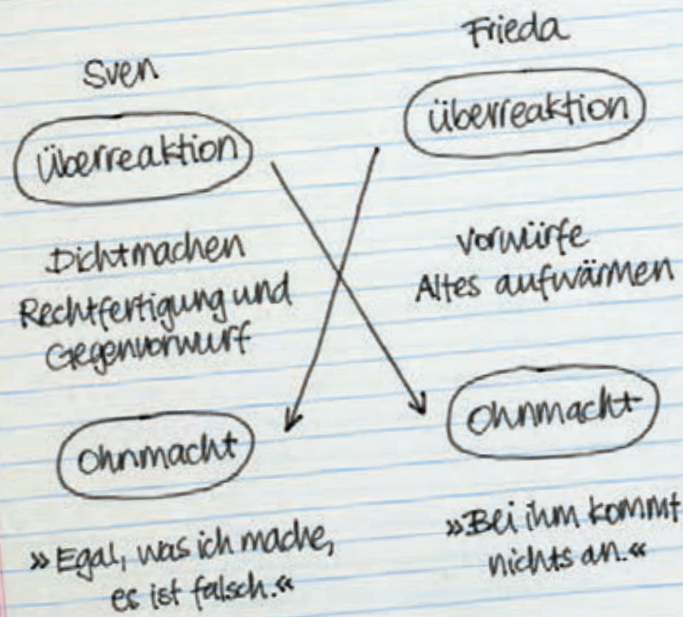 Sven
Überreaktion
Dichtmachen
Rechtfertigung und
Gegenvorwurf
Ohnmacht
»Egal, was ich mache,
es ist falsch.«
Frieda
Überreaktion
Vorwürfe
Altes aufwärmen
Ohnmacht
»Bei ihm kommt
nichts an.«